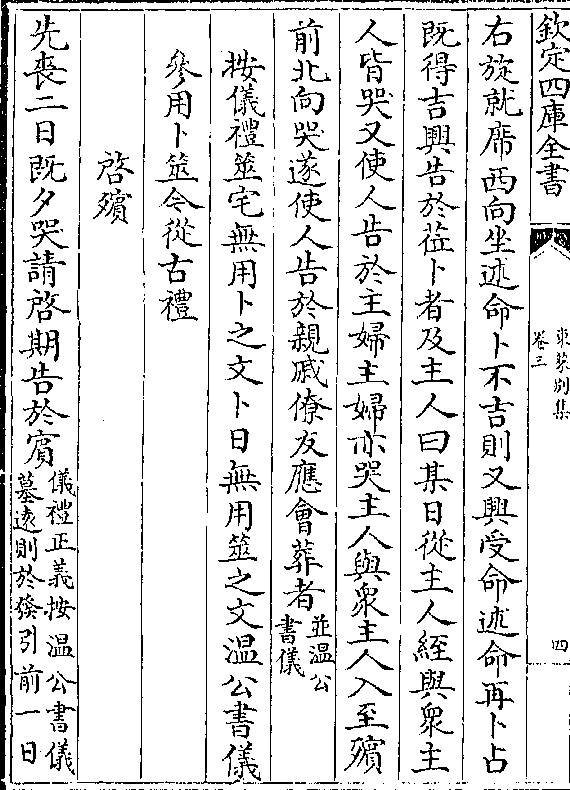 欽定四庫全書
東萊別集
卷三
四
右旋就席西向坐述命卜不吉則又興受命述命再卜占
既得吉興告於蒞卜者及主人曰某日從主人絰與衆主
人皆哭又使人告於主婦主婦亦哭主人與衆主人入至殯
前北向哭遂使人告於親戚僚友應會葬者並溫公書儀
按儀禮筮宅無用卜之文卜日無用筮之文溫公書儀
參用卜筮今從古禮
啓殯
先喪二日既夕哭請啓期告於賓儀禮正義按溫公書儀墓遠則於發引前一日